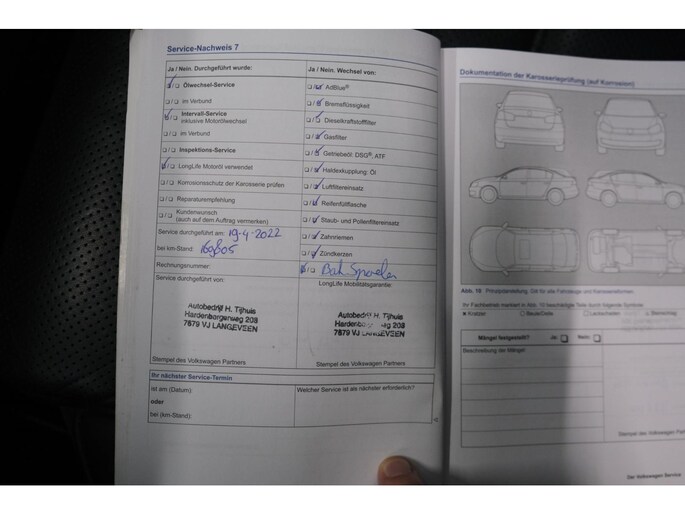 Service-Nachweis 7
Ja / Nein. Durchgeführt wurde:
Ölwechsel-Service
im Verbund
Intervall-Service
inklusive Motorölwechsel
im Verbund
Inspektions-Service
LongLife Motoröl verwendet
Korrosionsschutz der Karosserie prüfen
Reparaturempfehlung
Kundenwunsch
(auch auf dem Auftrag vermerken)
Service durchgeführt am: 19-4-2022
bei km-Stand: 169805
Rechnungsnummer:
Service durchgeführt von:
Autobedrijf H. Tijhuis
Hardenbergerweg 208
7679 VJ LANGEVEEN
Stempel des Volkswagen Partners
Ja / Nein. Wechsel von:
AdBlue®
Bremsflüssigkeit
Dieselkraftstofffilter
Gasfilter
Getriebeöl: DSG®, ATF
Haldexkupplung: Öl
Luftfiltereinsatz
Reifenfüllflasche
Staub- und Pollenfiltereinsatz
Zahnriemen
Zündkerzen
LongLife Mobilitätsgarantie:
Autobedrijf H. Tijhuis
Hardenbergerweg 208
7679 VJ LANGEVEEN
Stempel des Volkswagen Partners
Ihr nächster Service-Termin
ist am (Datum):
oder
bei (km-Stand):
Welcher Service ist als nächster erforderlich?
Dokumentation der Karosserieprüfung (auf Korrosion)
Abb. 10 Prinzipdarstellung. Gilt für alle Fahrzeuge und Karosserieformen.
Ihr Fachbetrieb markiert in Abb. 10 beschädigte Teile durch folgende Symbole:
x Kratzer Beule/Delle Lackschaden Steinschlag
Mängel festgestellt? Ja: Nein:
Beschreibung der Mängel:
Stempel des Volkswagen Part
Der Volkswagen Service